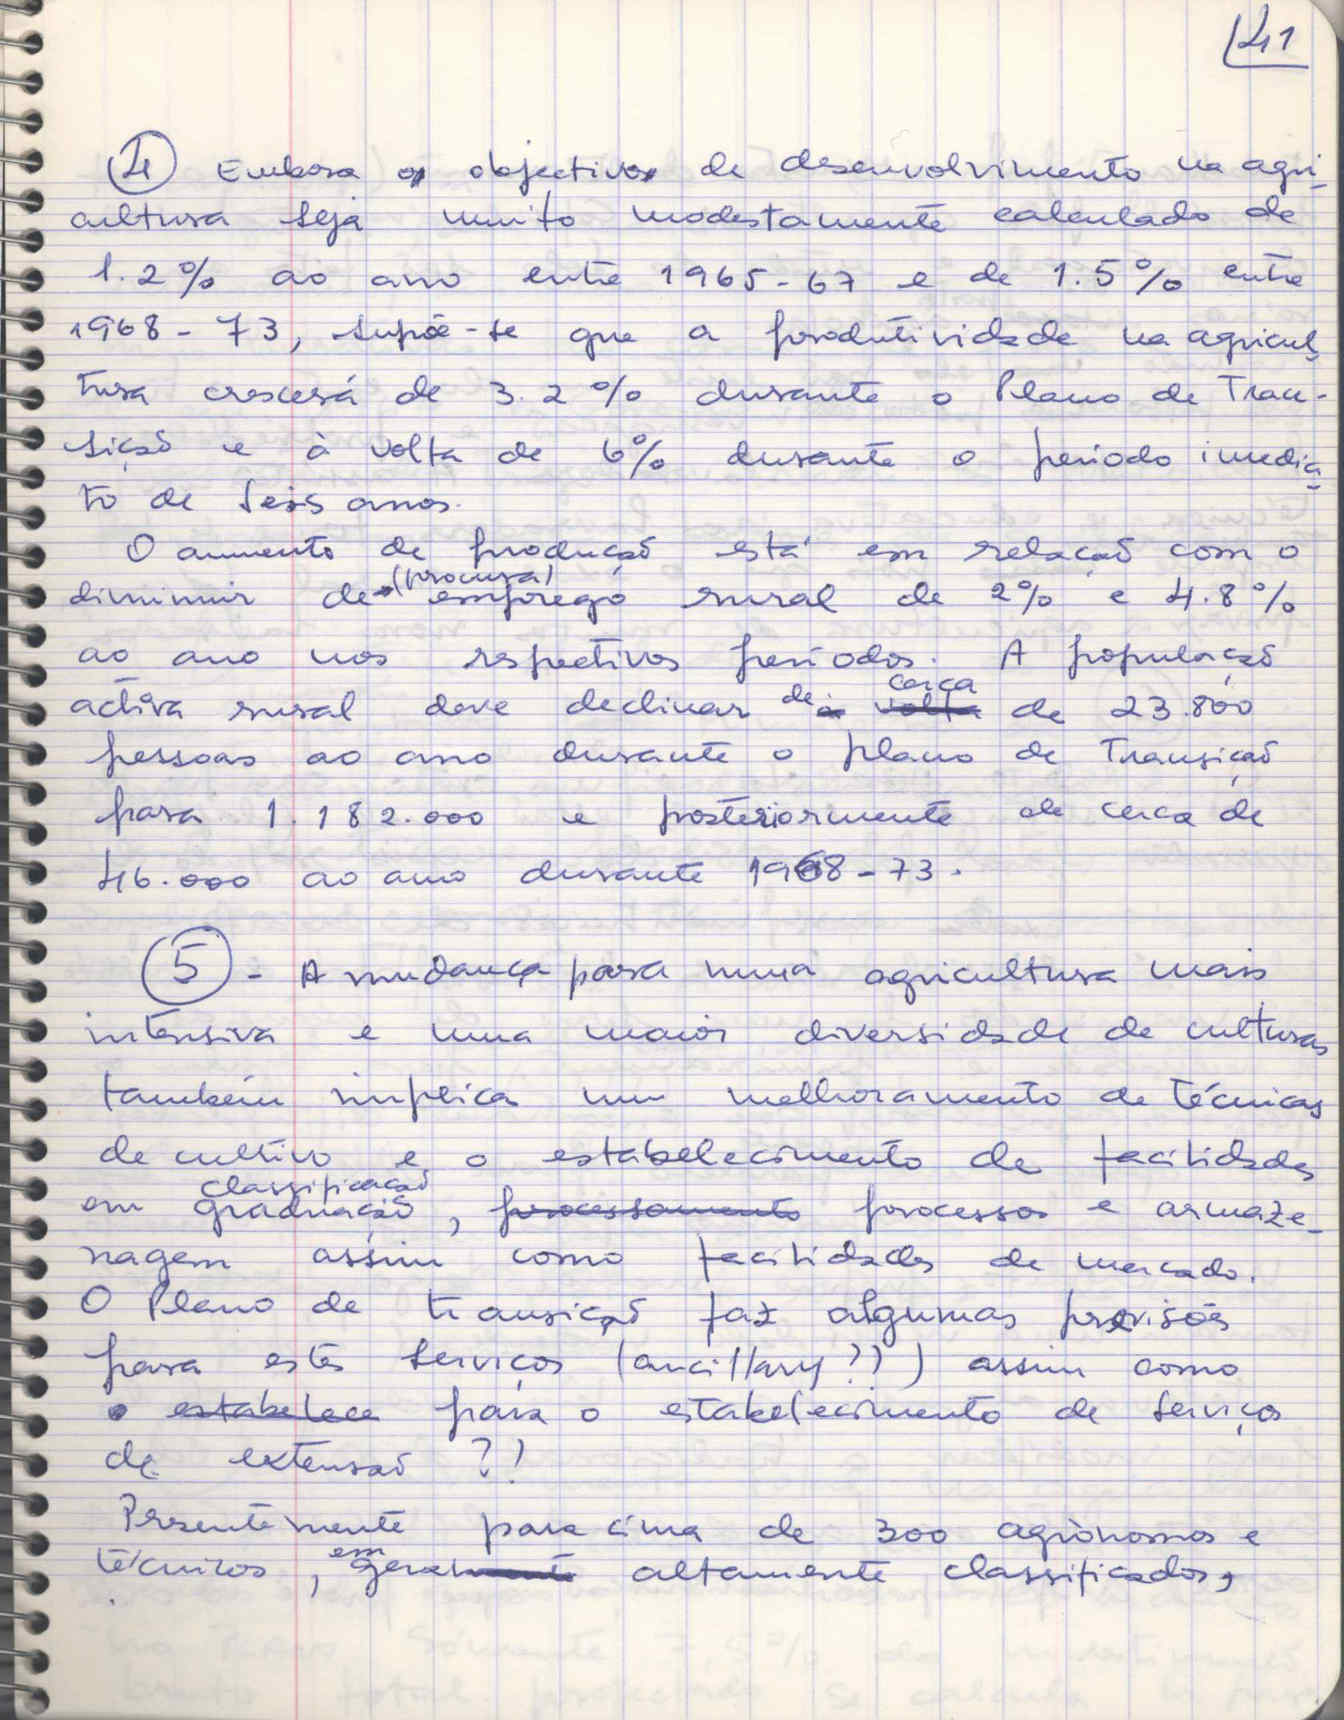 41
4 Embora o objectivo de desenvolvimento na agri-
cultura seja muito modestamente calculado de
1.2% ao ano entre 1965-67 e de 1.5% entre
1968-73, supõe-se que a produtividade na agricul-
tura crescerá de 3.2% durante o Plano de Tran-
sição e à volta de 6% durante o período imedia-
to de seis anos.
O aumento de produção está em relação com o
(procura)
diminuir de emprego rural de 2% e 4.8%
ao ano nos respectivos períodos. A população
cerca
activa rural deve declinar de volta de 23.800
pessoas ao ano durante o plano de Transição
para 1.182.000 e posteriormente de cerca de
46.000 ao ano durante 1968-73.
5 - A mudança para numa agricultura mais
intensiva e uma maior diversidade de culturas
também implica um melhoramento de técnicas
de cultivo e o estabelecimento de facilidades
classificação
em graduação, processamento processos e armaze-
nagem assim como facilidades de mercado.
O Plano de transição faz algumas previsões
para estes serviços (ancillary?!) assim como
estabelece para o estabelecimento de serviços
de extensão ?!
Presentemente para cima de 300 agrónomos e
em
técnicos, geralmente altamente classificados,